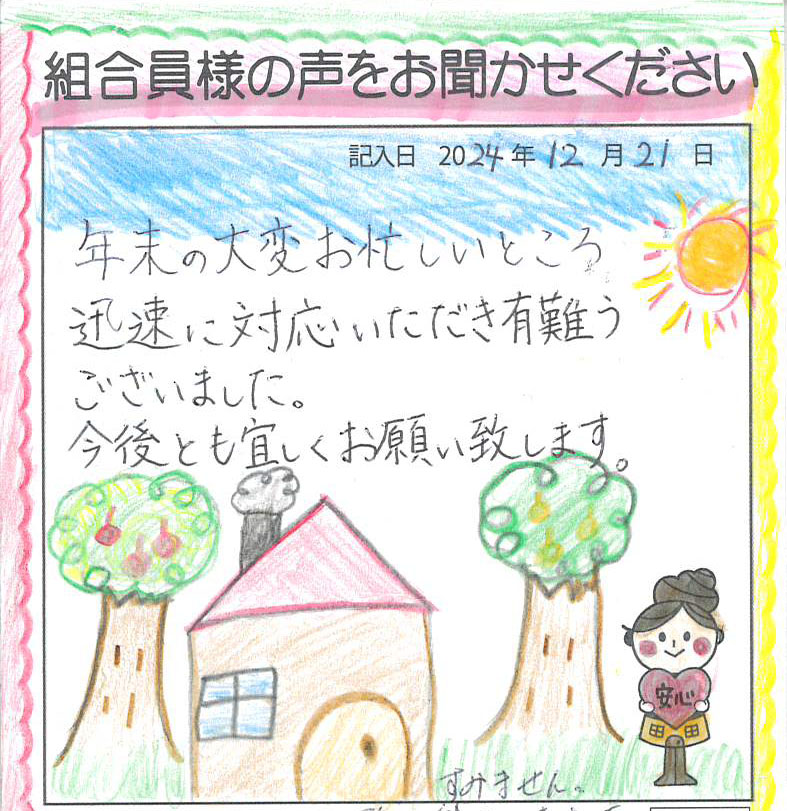 組合員様の声をお聞かせください
記入日 2024年12月21日
年末の大変お忙しいところ
迅速に対応いただき有難う
ございました。
今後とも宜しくお願い致します。
安心
すみません。